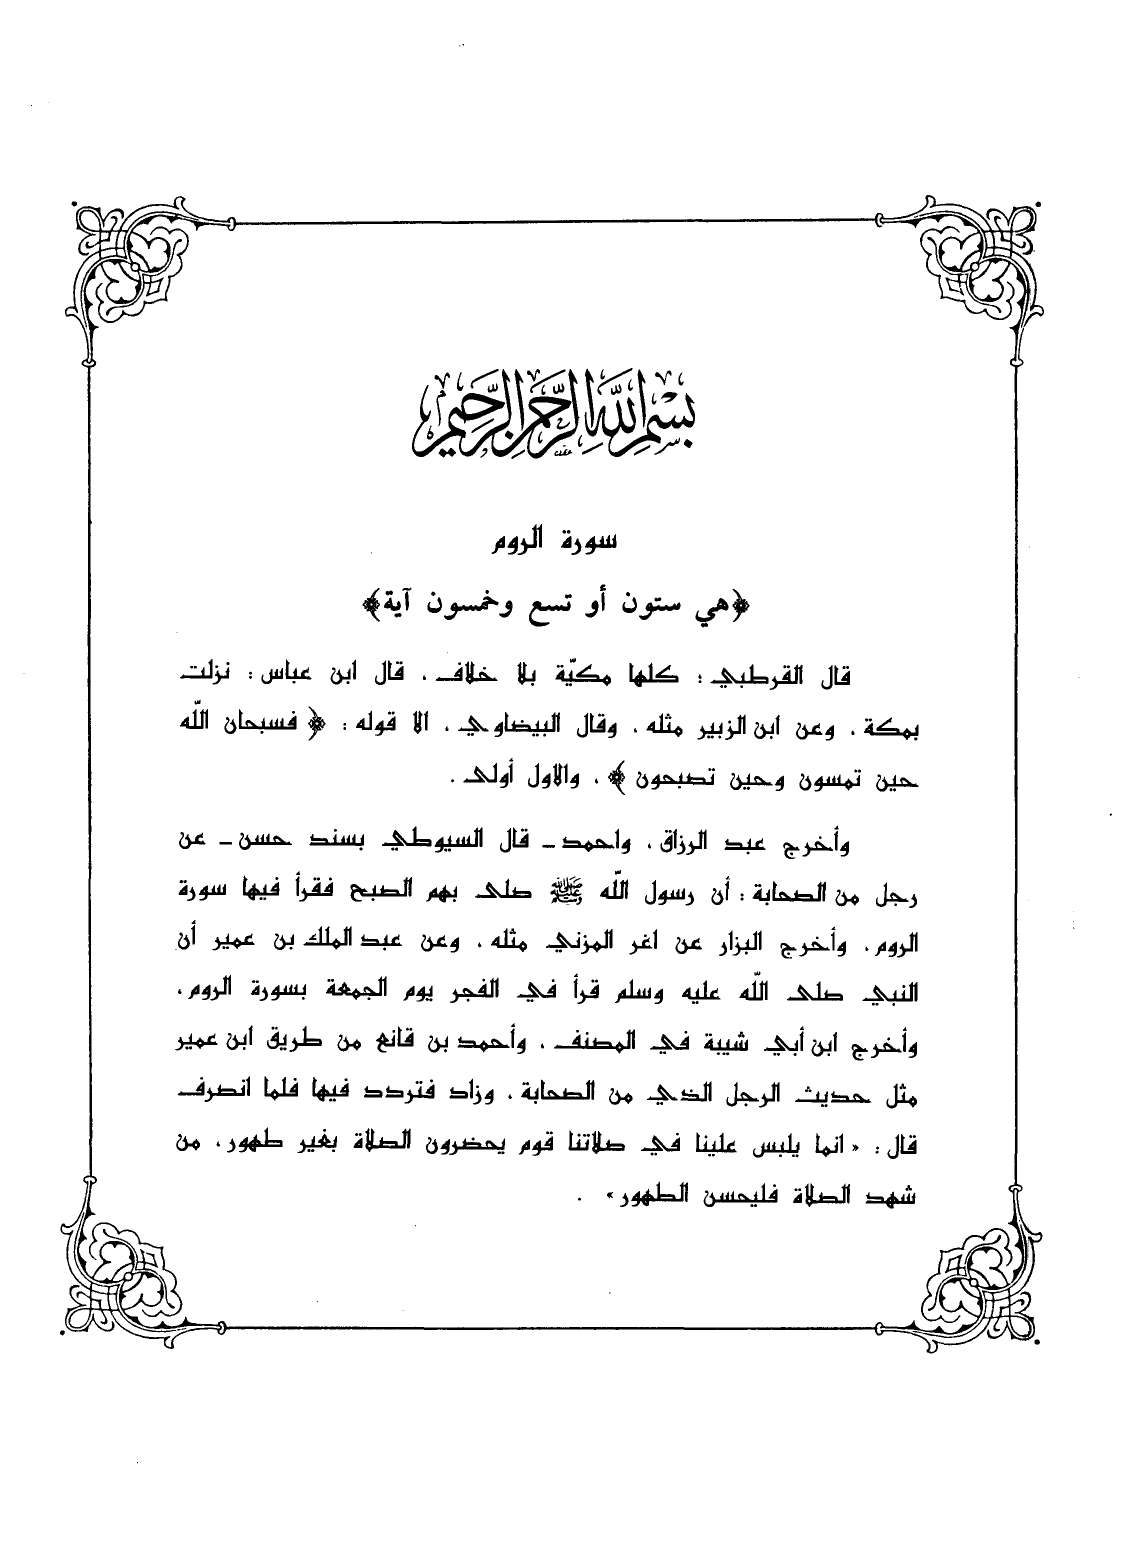 بسم الله الرحمن الرحيم
سورة الروم
﴿هي ستون أو تسع وخمسون آية﴾
قال القرطبي : كلها مكيّة بلا خلاف ، قال ابن عباس : نزلت
بمكة ، وعن ابن الزبير مثله ، وقال البيضاوي ، الا قوله : ﴿ فسبحان الله
حين تمسون وحين تصبحون ﴾ ، والاول أولى .
وأخرج عبد الرزاق ، واحمد ــ قال السيوطي بسند حسن ــ عن
رجل من الصحابة : أن رسول الله ﷺ صلى بهم الصبح فقرأ فيها سورة
الروم ، وأخرج البزار عن اغر المزني مثله ، وعن عبد الملك بن عمير أن
النبي صلى الله عليه وسلم قرأ في الفجر يوم الجمعة بسورة الروم ،
وأخرج ابن أبي شيبة في المصنف ، وأحمد بن قانع من طريق ابن عمير
مثل حديث الرجل الذي من الصحابة ، وزاد فتردد فيها فلما انصرف
قال : « انما يلبس علينا في صلاتنا قوم يحضرون الصلاة بغير طهور ، من
شهد الصلاة فليحسن الطهور» .